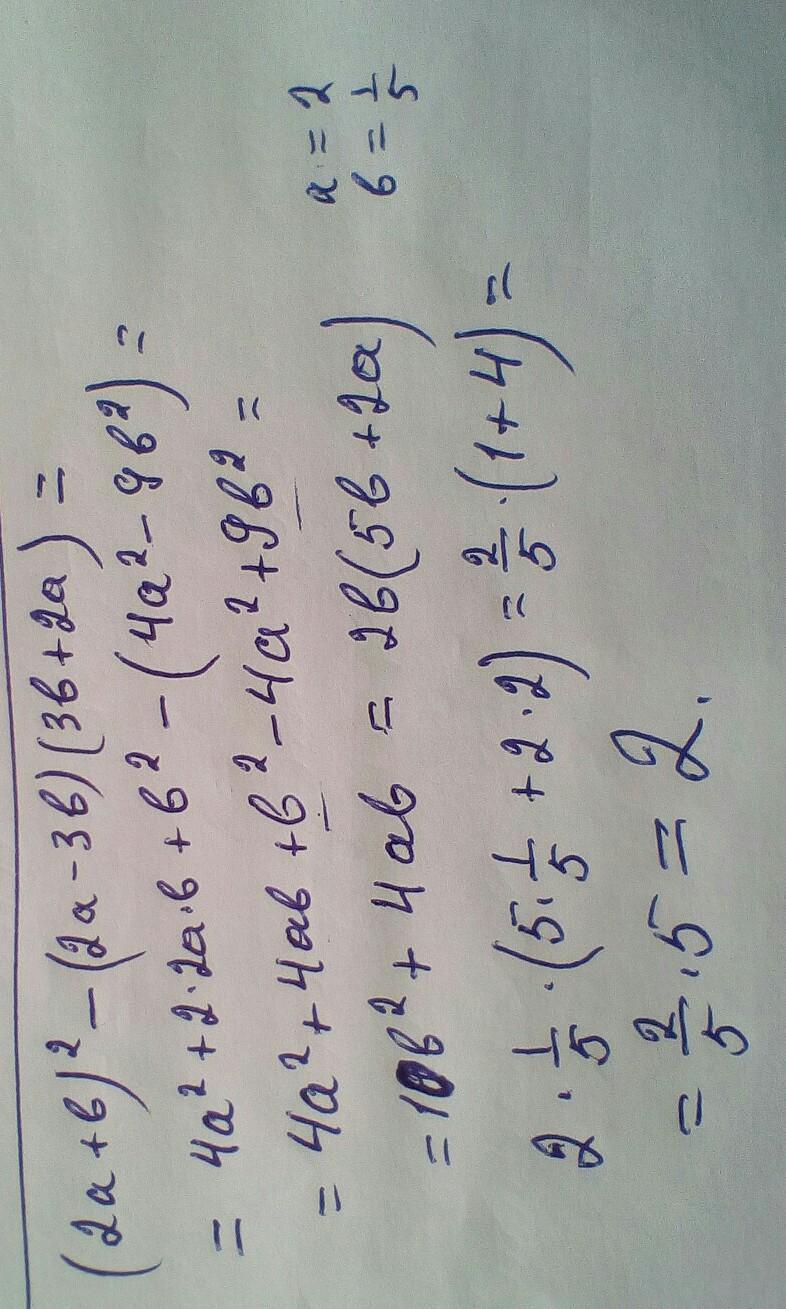 (2a+b)² - (2a-3b)(3b+2a) =
= 4a² + 2·2a·b + b² - (4a² - 9b²) =
= 4a² + 4ab + b² - 4a² + 9b² =
= 10b² + 4ab = 2b(5b+2a)
a = 2
b = 1/5
2 · 1/5 · (5 · 1/5 + 2·2) = 2/5 · (1+4) =
= 2/5 · 5 = 2.